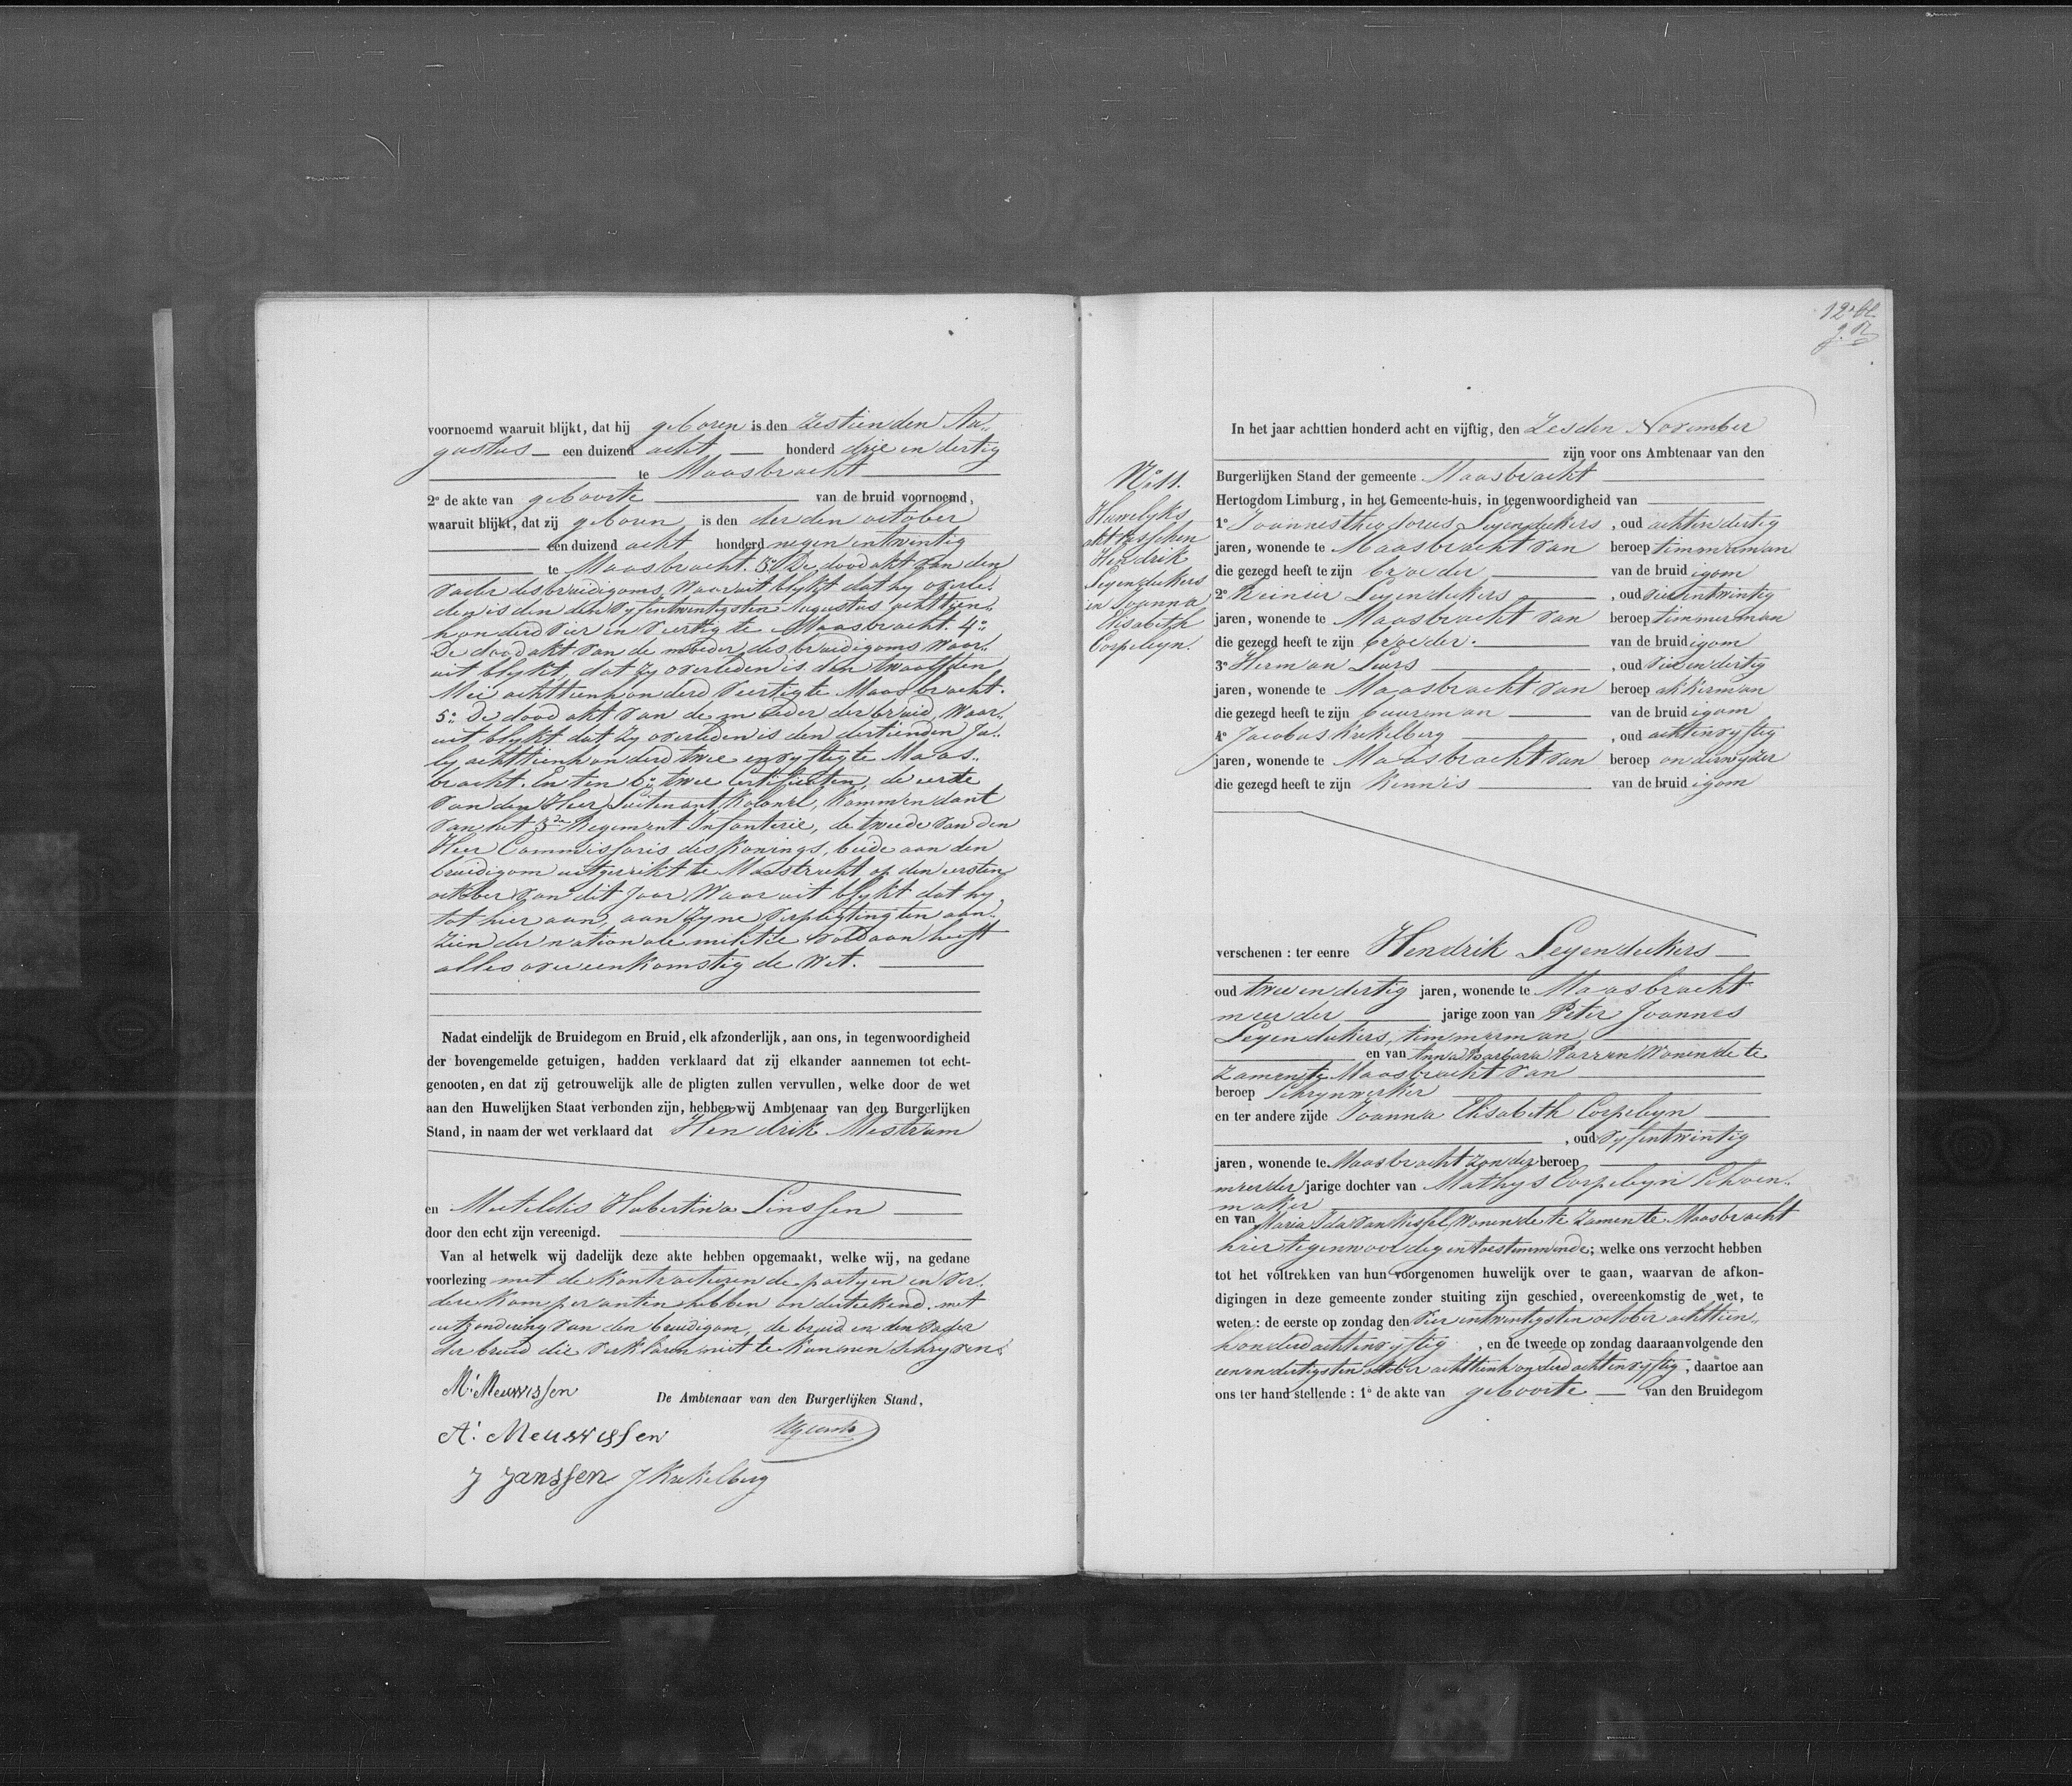 voornoemd waaruit blijkt, dat hij geboren is den zestienden Au„
gustus — een duizend acht — honderd drie en dertig
te Maasbracht
2º de akte van geboorte van de bruid voornoemd,
waaruit blijkt, dat zij geboren is den derden october
een duizend acht honderd negen entwintig
te Maasbracht. 3º De dood akt van den
vader des bruidigoms, Waaruit blykt dat hy overle„
den is den den vyfentwintigsten Augustus achttien„
honderd vier en veertig te Maasbracht. 4º:
De dood akt van de moeder des bruidigoms waar„
uit blykt, dat zy overleden is den twaalfden
Mei achttienhonderd veertig te Maasbracht.
5º: De dood akt van de moeder der bruid, Waar„
uit blykt dat Zy overleden is den dertienden Ju„
ly achttienhonderd twee en vyftig te Maas„
bracht. En ten 6º twee Certificaten, de eerste
van den Heer Luitenant Kolonel, Kommendant
van het 3de Regement Infanterie, de tweede van den
Heer Commissaris des Konings, beide aan den
bruidigom uitgerikt te Mastricht op den eersten
october van dit Jaar Waar uit blykt dat hy,
tot hier aan, aan Zyne verpligting ten aan„
zien der nationale militie voldaan heeft
alles overeenkomstig de Wet.
Nadat eindelijk de Bruidegom en Bruid, elk afzonderlijk, aan ons, in tegenwoordigheid
der bovengemelde getuigen, hadden verklaard dat zij elkander aannemen tot echt-
genooten, en dat zij getrouwelijk alle de pligten zullen vervullen, welke door de wet
aan den Huwelijken Staat verbonden zijn, hebben wij Ambtenaar van den Burgerlijken
Stand, in naam der wet verklaard dat Hendrik Mestrum
en Metildis Hubertina Linssen
door den echt zijn vereenigd.
Van al hetwelk wij dadelijk deze akte hebben opgemaakt, welke wij, na gedane
voorlezing met de Kontracterende partyen en ver„
dere Komparanten hebben onderteekend. met
uitzondering van den bruidigom, de bruid en den vader
der bruid die verklaren niet te Kunnen Schryven.
M: Meuwissen
De Ambtenaar van den Burgerlijken Stand,
A: Meuwissen
J Janssen J Krekelberg
12e bl.
In het jaar achttien honderd acht en vijftig, den Zesden November
zijn voor ons Ambtenaar van den
Burgerlijken Stand der gemeente Maasbracht
Hertogdom Limburg, in het Gemeente-huis, in tegenwoordigheid van
1º Joannes theodorus Leyendeckers , oud achtendertig
jaren, wonende te Maasbracht van beroep timmerman
die gezegd heeft te zijn broeder van de bruid igom
2º Reinier Leyendeckers , oud vierentwintig
jaren, wonende te Maasbracht van beroep timmerman
die gezegd heeft te zijn broeder. van de bruid igom
3º Herman Leurs , oud vierendertig
jaren, wonende te Maasbracht van beroep akkerman
die gezegd heeft te zijn buurman van de bruid igom
4º Jacobus Krekelberg , oud achtenvyftig
jaren, wonende te Maasbracht van beroep onderwyzer
die gezegd heeft te zijn Kennis van de bruid igom
Nº 11.
Huwelyks
akt tusschen
Hendrik
Leyendeckers
en Joanna
Elisabeth
Corpelyn.
verschenen : ter eenre Hendrik Leyendeckers
oud twee en dertig jaren, wonende te Maasbracht
meerder jarige zoon van Peter Joannes
Leyendeckers, timmerman
en van Anna Barbara Parren Wonende te
zamen te Maasbracht van
beroep Schrynwerker
en ter andere zijde Joanna Elisabeth Corpelyn
, oud vyfentwintig
jaren, wonende te Maasbracht zonder beroep
meerder jarige dochter van Mathys Corpelyn Schoen„
maker
en van Maria Ida van Kessel Wonende te zamen te Maasbracht
hier tegenwoordig en toestemmende; welke ons verzocht hebben
tot het voltrekken van hun voorgenomen huwelijk over te gaan, waarvan de afkon-
digingen in deze gemeente zonder stuiting zijn geschied, overeenkomstig de wet, te
weten : de eerste op zondag den vier entwintigsten october achttien„
honderd achtenvyftig , en de tweede op zondag daaraanvolgende den
eenendertigsten october achttienhonderd achtenvyftig , daartoe aan
ons ter hand stellende : 1º de akte van geboorte — van den Bruidegom